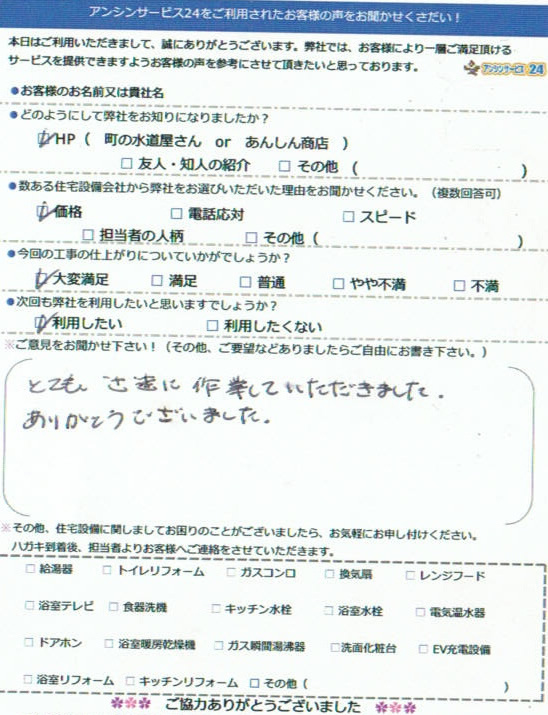 アンシンサービス24をご利用されたお客様の声をお聞かせくさだい！
本日はご利用いただきまして、誠にありがとうございます。弊社では、お客様により一層ご満足頂ける
サービスを提供できますようお客様の声を参考にさせて頂きたいと思っております。
アンシンサービス24
●お客様のお名前又は貴社名
●どのようにして弊社をお知りになりましたか？
☑HP（ 町の水道屋さん or あんしん商店 ）
□ 友人・知人の紹介 □ その他（ ）
●数ある住宅設備会社から弊社をお選びいただいた理由をお聞かせください。（複数回答可）
☑価格 □ 電話応対 □ スピード
□ 担当者の人柄 □ その他（ ）
●今回の工事の仕上がりについていかがでしょうか？
☑大変満足 □ 満足 □ 普通 □ やや不満 □ 不満
●次回も弊社を利用したいと思いますでしょうか？
☑利用したい □ 利用したくない
※ご意見をお聞かせ下さい！（その他、ご要望などありましたらご自由にお書き下さい。）
とても 迅速に 作業していただきました.
ありがとうございました。
※その他、住宅設備に関しましてお困りのことがございましたら、お気軽にお申し付けください。
ハガキ到着後、担当者よりお客様へご連絡をさせていただきます。
□ 給湯器 □ トイレリフォーム □ ガスコンロ □ 換気扇 □ レンジフード
□ 浴室テレビ □ 食器洗機 □ キッチン水栓 □ 浴室水栓 □ 電気温水器
□ ドアホン □ 浴室暖房乾燥機 □ ガス瞬間湯沸器 □洗面化粧台 □ EV充電設備
□ 浴室リフォーム □ キッチンリフォーム □ その他（ ）
ご協力ありがとうございました